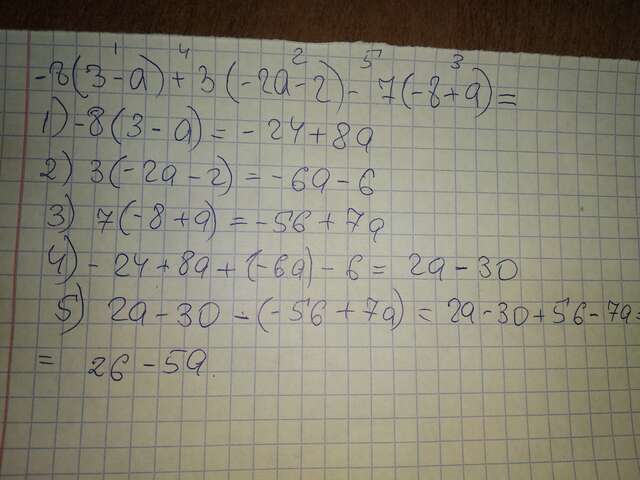 1 4 2 5 3
-8(3-a)+3(-2a-2)-7(-8+a)=
1) -8(3-a)=-24+8a
2) 3(-2a-2)=-6a-6
3) 7(-8+a)=-56+7a
4) -24+8a+(-6a)-6=2a-30
5) 2a-30-(-56+7a)=2a-30+56-7a=
= 26-5a.